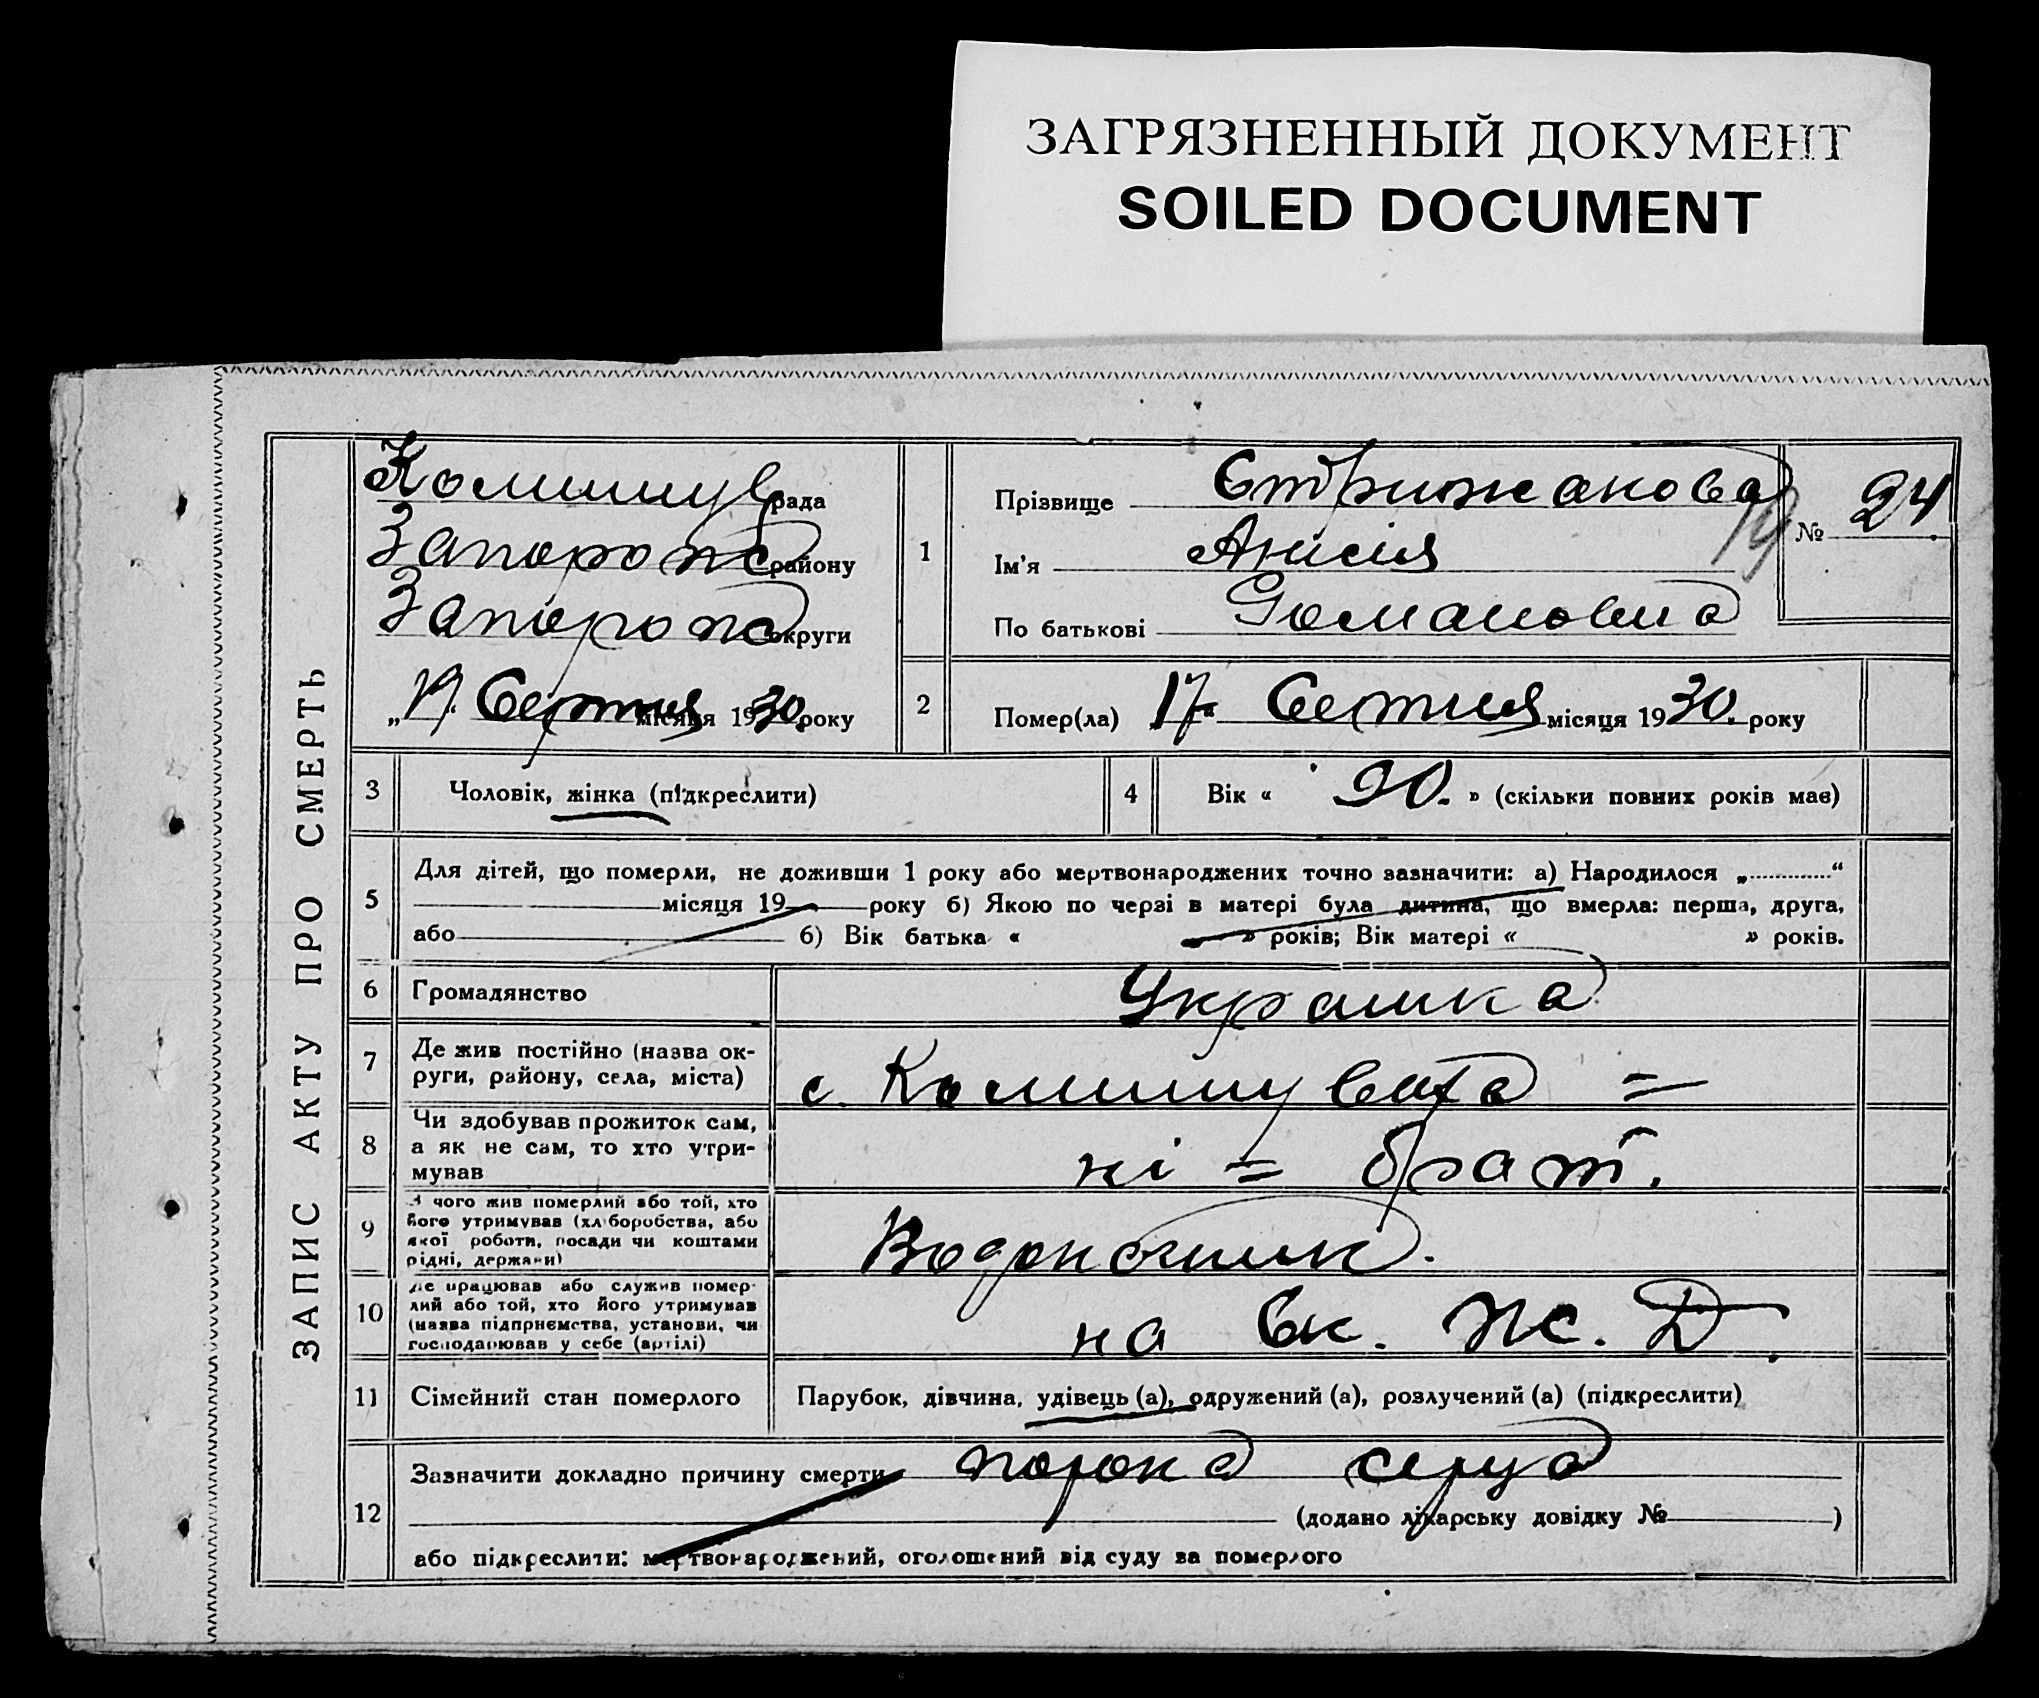 ЗАГРЯЗНЕННЫЙ ДОКУМЕНТ
SOILED DOCUMENT
ЗАПИС АКТУ ПРО СМЕРТЬ
Комишув рада
Запорож району
Запорож округи
„19. Серпня місяця 1930. року
1
Прізвище Стрижакова
Ім'я Анисія
По батькові Романовна
№ 24
19
2
Помер(ла) 17 Серпня місяця 1930. року
3
Чоловік, жінка (підкреслити)
4
Вік « 90. » (скільки повних років має)
5
Для дітей, що померли, не доживши 1 року або мертвонароджених точно зазначити: а) Народилося „ “
місяця 19 року б) Якою по черзі в матері була дитина, що вмерла: перша, друга,
або б) Вік батька « » років; Вік матері « » років.
6
Громадянство
Украинка
7
Де жив постійно (назва ок-
руги, району, села, міста)
с. Комишувата =
8
Чи здобував прожиток сам,
а як не сам, то хто утри-
мував
ні = брат.
9
З чого жив померлий або той, хто
його утримував (хліборобства, або
якої роботи, посади чи коштами
рідні, держави)
10
Де працював або служив помер-
лий або той, хто його утримував
(назва підприємства, установи, чи
господарював у себе (артілі)
на Ек. Ж. Д.
11
Сімейний стан померлого
Парубок, дівчина, удівець (а), одружений (а), розлучений (а) (підкреслити)
12
Зазначити докладно причину смерти порока серца
(додано лікарську довідку № )
або підкреслити: мертвонароджений, оголошений від суду за померлого